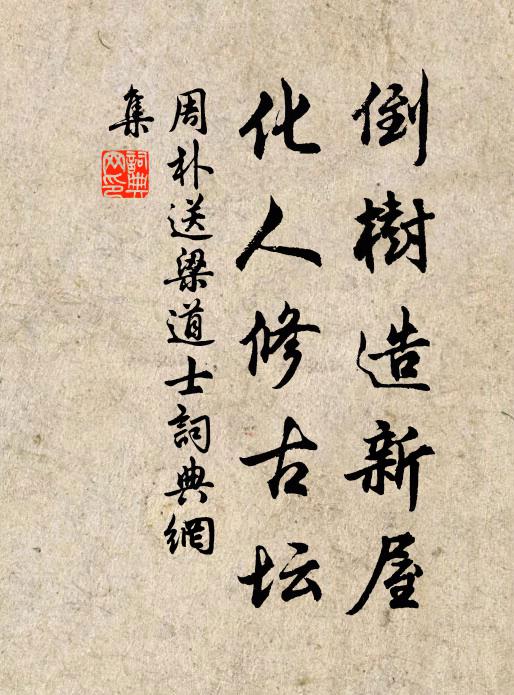 倒樹造新屋
化人修古坛
周朴送梁道士詞典網
集
詞典
网印